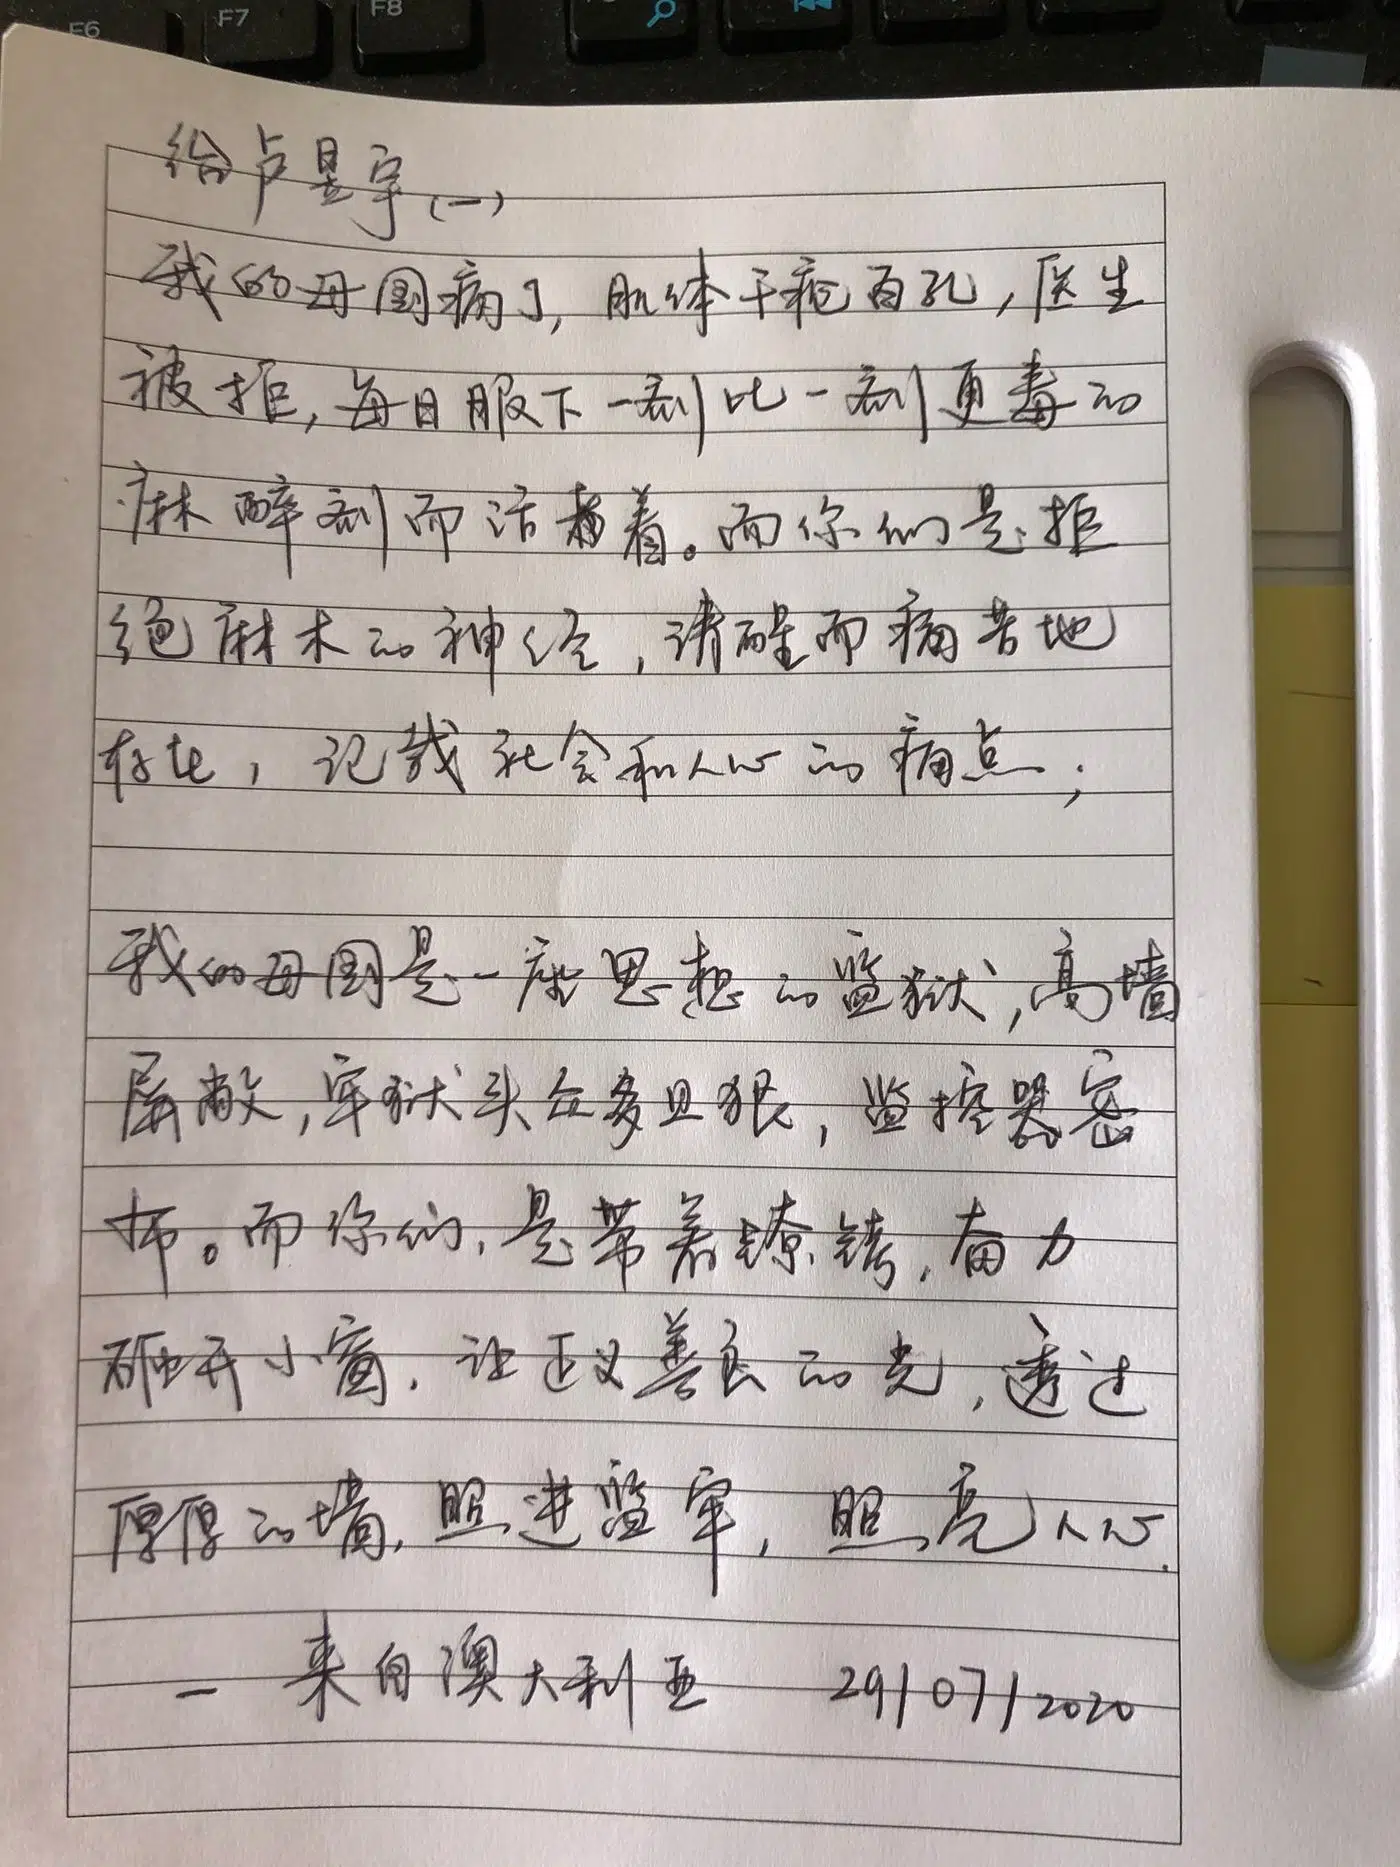 F6 F7 F8
给卢昱宇(一)
我的母国病了，肌体千疮百孔，医生
被拒，每日服下一剂比一剂更毒的
麻醉剂而活着。而你们是拒
绝麻木的神经，清醒而痛苦地
存在，记载社会和人心的痛点；
我的母国是一座思想的监狱，高墙
屏敝，牢狱头众多且狠，监控器密
布。而你们，是带着镣铐，奋力
砸开小窗，让正义善良的光，透过
厚厚的墙，照进监牢，照亮人心.
— 来自澳大利亚 29/07/2020